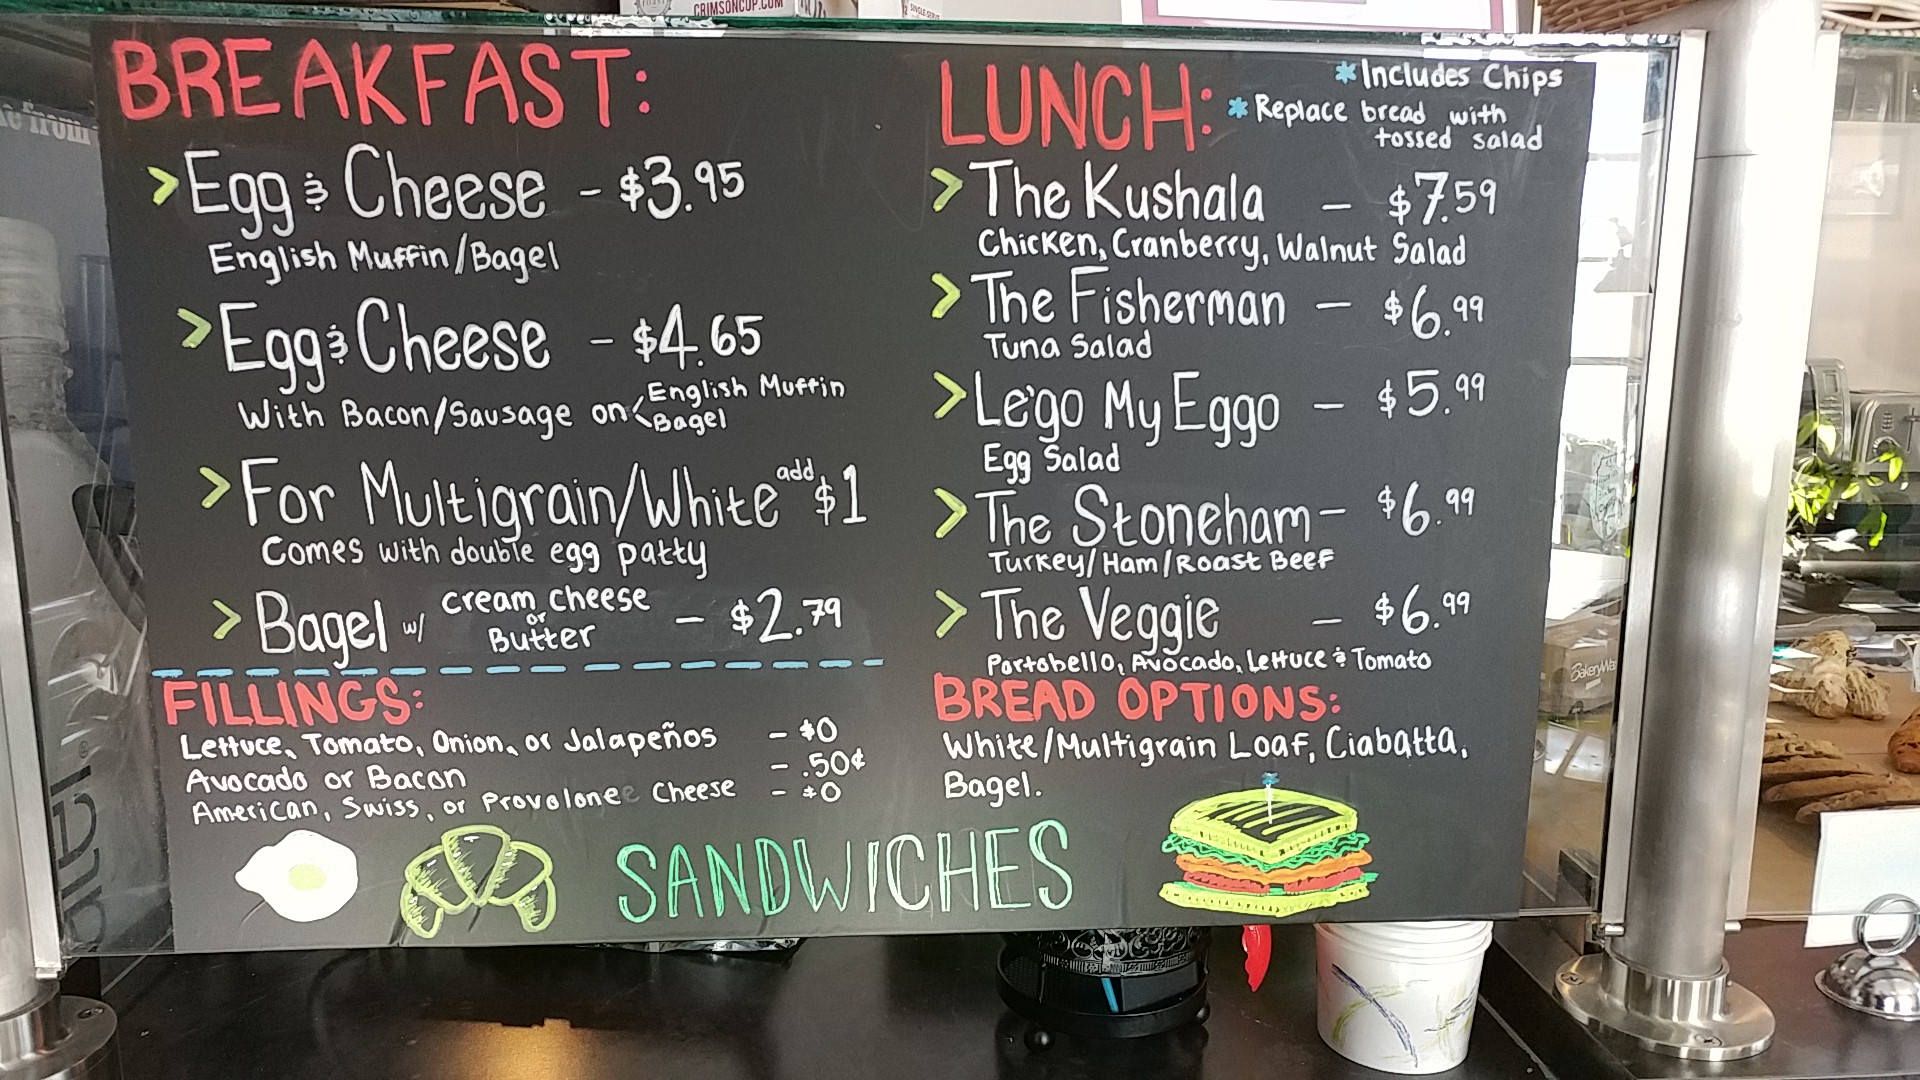 CRIMSONCUP.COM
SINGLE-SERVE
BREAKFAST:
> Egg & Cheese - $3.95
English Muffin/Bagel
> Egg & Cheese - $4.65
With Bacon/Sausage on < English Muffin
Bagel
> For Multigrain/White add $1
Comes with double egg patty
> Bagel w/ cream cheese or Butter - $2.79
FILLINGS:
Lettuce, Tomato, Onion, or Jalapeños - $0
Avocado or Bacon - .50¢
American, Swiss, or Provolone Cheese - $0
LUNCH:
*Includes Chips
*Replace bread with
tossed salad
> The Kushala - $7.59
Chicken, Cranberry, Walnut Salad
> The Fisherman - $6.99
Tuna Salad
> Le'go My Eggo - $5.99
Egg Salad
> The Stoneham - $6.99
Turkey/Ham/Roast Beef
> The Veggie - $6.99
Portobello, Avocado, Lettuce & Tomato
BREAD OPTIONS:
White/Multigrain Loaf, Ciabatta,
Bagel.
SANDWICHES